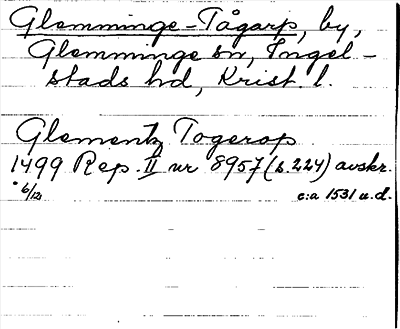 Glemminge-Tågarp, by,
Glemminge sn, Ingel-
stads hd, Krist. l.
Glementz Togerop
1499 Rep. II nr 8957 (s. 224) avskr.
6/12 c:a 1531 u.d.